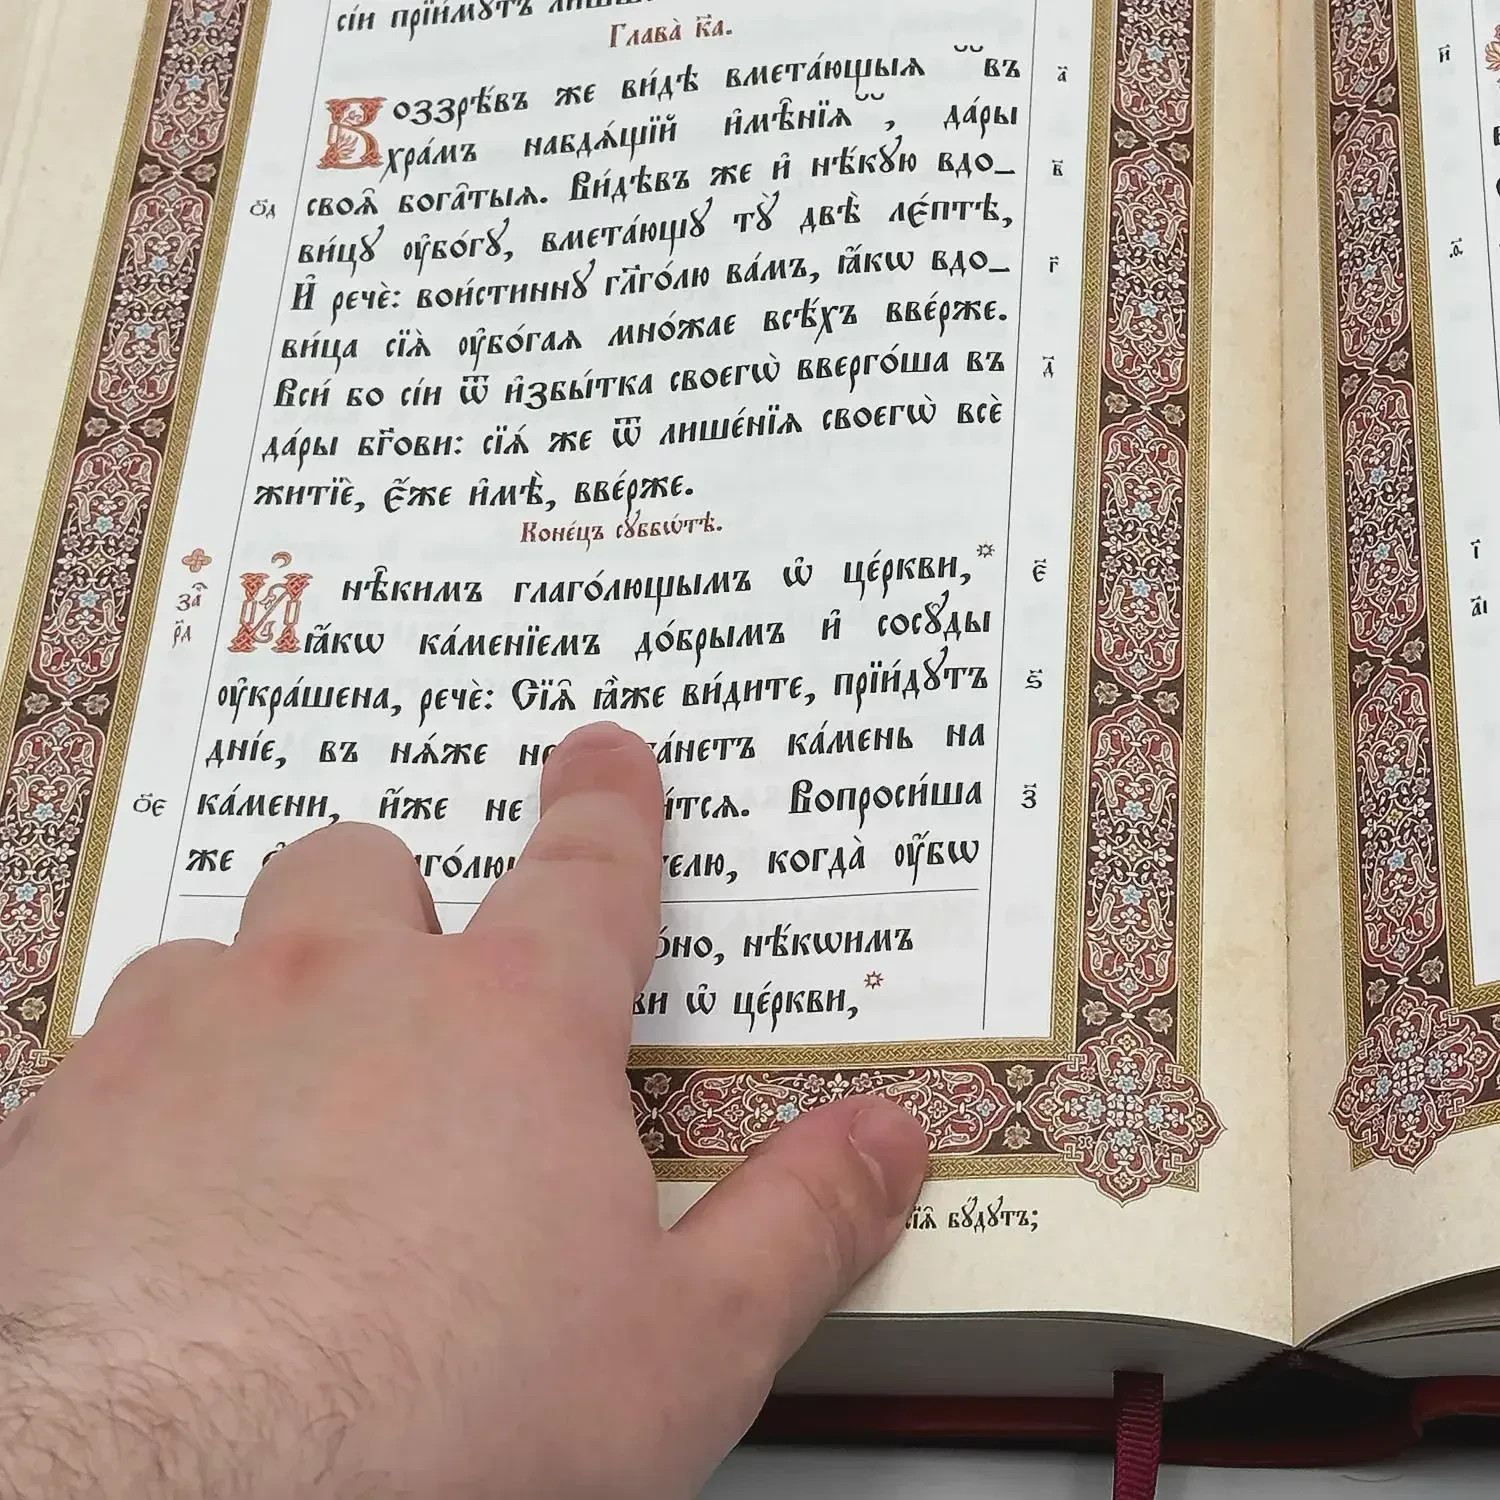 сі́и прїи́мꙋтъ
Глава̀ к҃а.
Воззрѣ́въ же ви́дѣ вмета́ющыѧ въ
хра́мъ набдѧ́щїй и҆мѣ̑нїѧ , да́ры
своѧ̑ бога̑тыѧ. Ви́дѣвъ же и҆ нѣ́кꙋю вдо_
ви́цꙋ ᲂу҆бо́гꙋ, вмета́ющꙋ тꙋ̀ двѣ̀ лє́птѣ,
И҆ речѐ: вои́стиннꙋ гл҃го́лю ва́мъ, ꙗ҆́кѡ вдо_
ви́ца сїѧ̀ ᲂу҆бо́гаѧ мно́жае всѣ́хъ вве́рже.
Вси́ бо сі́и ѿ и҆збы́тка своегѡ̀ вверго́ша въ
да́ры бг҃ови: сїѧ́ же ѿ лише́нїѧ своегѡ̀ всѐ
житїѐ, є҆́же и҆мѣ̀, вве́рже.
Коне́цъ сꙋббѡ́тѣ.
И҆ нѣ̑кимъ глаго́лющымъ ѡ҆ це́ркви,
ꙗ҆́кѡ ка́менїемъ до́брымъ и҆ сосꙋ́ды
ᲂу҆кра́шена, речѐ: Сїѧ̑ ꙗ҆̀же ви́дите, прїи́дꙋтъ
дні́е, въ нѧ́же ка́мень на
ка́мени, и҆́же не Вопроси́ша
же когда̀ ᲂу҆̀бѡ
нѣ́кѡимъ
ѡ҆ це́ркви,
сїѧ̑ бꙋ́дꙋтъ;
ѻ҃д
ѻ҃є
за҃
р҃д
а҃
в҃
г҃
д҃
є҃
ѕ҃
з҃
и҃
і҃
а҃і